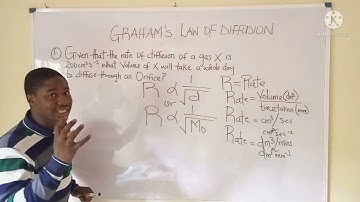 KINEMASTER
GRAHAM'S LAW OF DIFFUSION
① Given that the rate of diffusion of a gas X is
200cm³s⁻¹. What Volume of X will take a whole day
to diffuse through an Orifice?
R ∝ 1/√d
or
R ∝ 1/√Mo
R = Rate
Rate = Volume (cm³)/time taken
Rate = cm³/sec
cm³ sec⁻¹
Rate = dm³/mins
or
dm³ min⁻¹